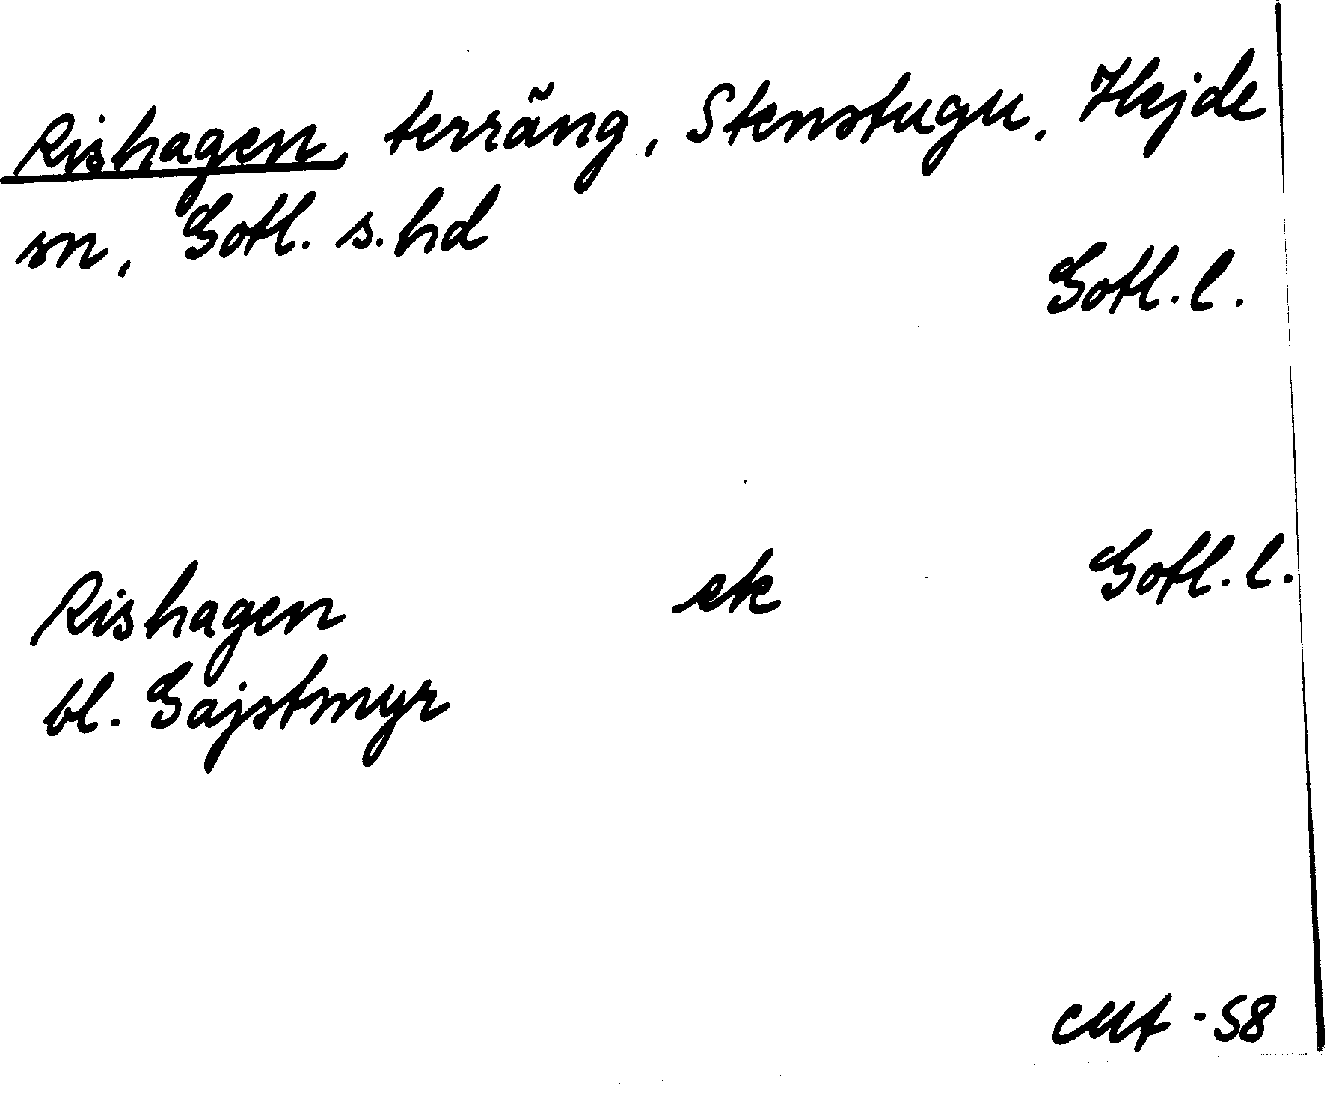 Rishagen, terräng, Stenstugu, Hejde
sn, Gotl. s. hd
Gotl. l.
Rishagen ek Gotl. l.
bl. Gajstmyr
-58